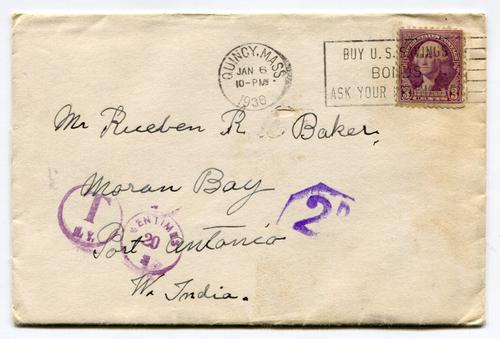 QUINCY, MASS.
JAN 6
10-PM
1938
BUY U.S. SAVINGS
BONDS
ASK YOUR
3 3
Mr Rueben R Baker,
Moran Bay
Port Antonio
W. India.
T
N.Y.
CENTIMES
20
N
2D